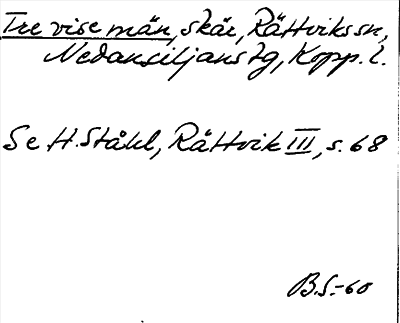 Tre vise män, skär, Rättviks sn,
Nedansiljans tg, Kopp. l.
Se H. Ståhl, Rättvik III, s. 68
B.S.-60